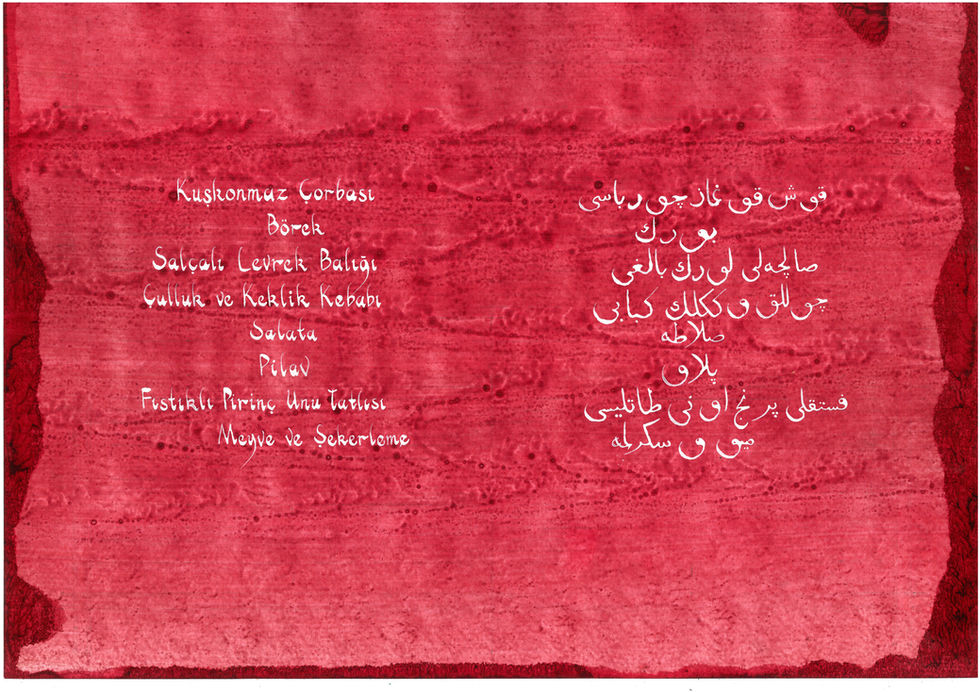 Kuşkonmaz Çorbası
Börek
Salçalı Levrek Balığı
Çulluk ve Keklik Kebabı
Salata
Pilav
Fıstıklı Pirinç Unu Tatlısı
Meyve ve Şekerleme
قوش قونماز چورباسی
بورك
صالچه‌لی لورك بالغی
چوللق و ككلك كبابی
صلاطه
پلاو
فستقلی پرنج اونی طاتلیسی
میوه و سكرلمه